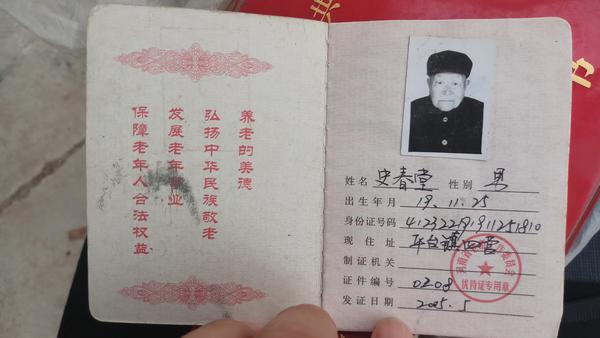 保障老年人合法权益
发展老年事业
弘扬中华民族敬老
养老的美德
姓名 史春堂 性别 男
出生年月 19.11.25
身份证号码 412322191911251810
现住址 平台镇四营
制证机关
证件编号 0208
发证日期 2005.5
优待证专用章